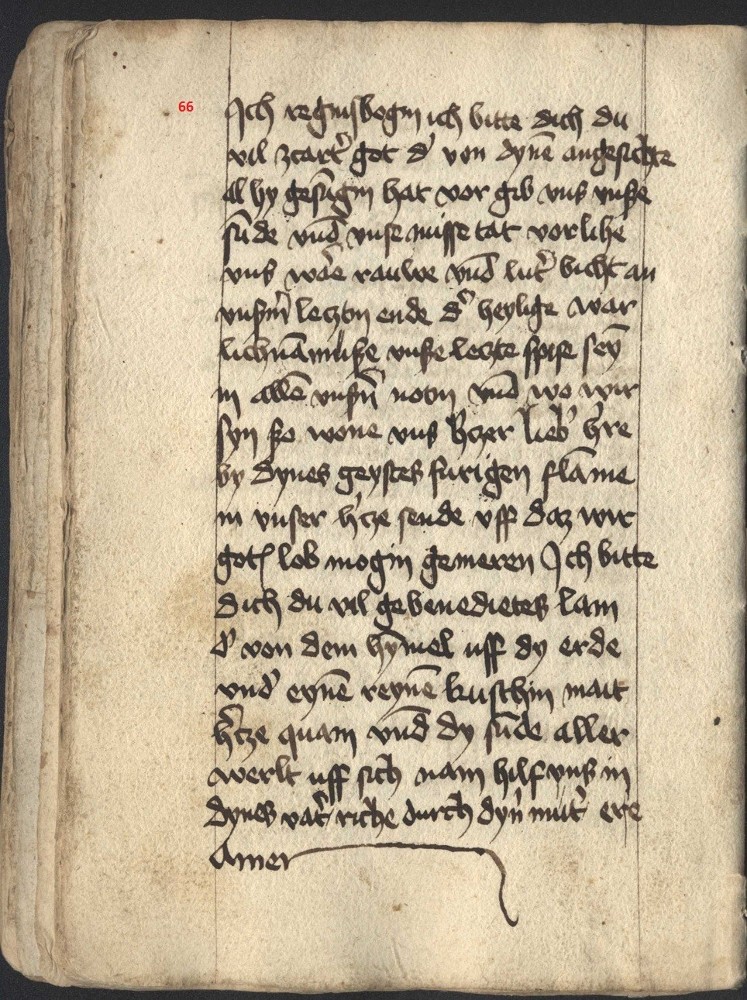 66
Ich regnisbogin ich bitte dich du
vil zcart' got d' von dynē angesichte
al hy gesūgin hat vor gib vns vnße
sūde vnd̄ vnse misse tat vorlihe
vns wāe rauwe vnd̄ lut' bicht an
vnßm̄ leczten ende d' heylige war
lichnā muße vnße leczte spise sey̅
in allē vnßn̄ noten vnd̄ wo wir
syn ßo wone vns h'czer lieb' h're
by dynes geystes furigen flāme
in vnser h'cze sende vff daz wir
gotꝭ lob mogin gemeren Ich bitte
dich du vil gebenedietes lam
d' von dem hȳmel uff dy erde
vnd' eynē reynē kuschin mait
h'cze quam vnd̄ dy sūde aller
werlt uff sich nam hilf vns in
dynes vat' riche durch dyn' mut' ere
Amen